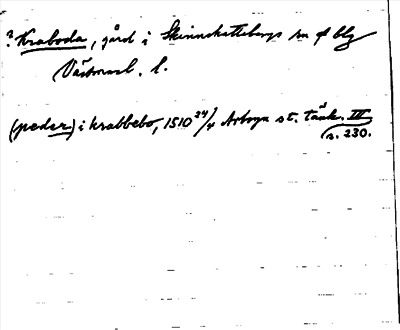 ? Kraboda, gård i Skinnskattebergs sn o blg
Västmanl. l.
(peder) i krabbebo, 1510 24/4 Arboga st. tänk. III
s. 230.